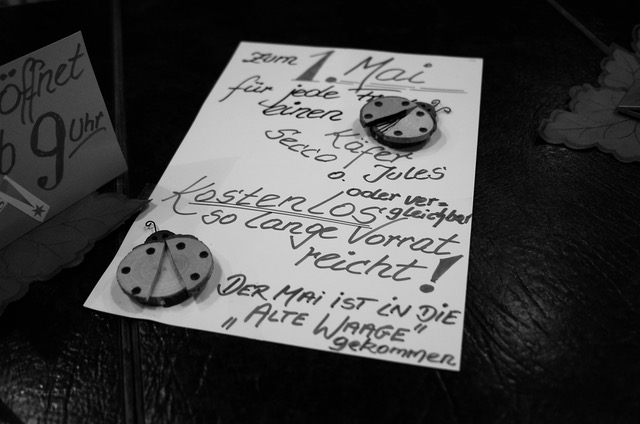 öffnet
9 Uhr
zum 1. Mai
für jede
einen
Käfer
Secco o. Jules
oder ver-
gleichbar
Kostenlos
so lange Vorrat
reicht!
DER MAI IST IN DIE
„ALTE WAAGE"
gekommen